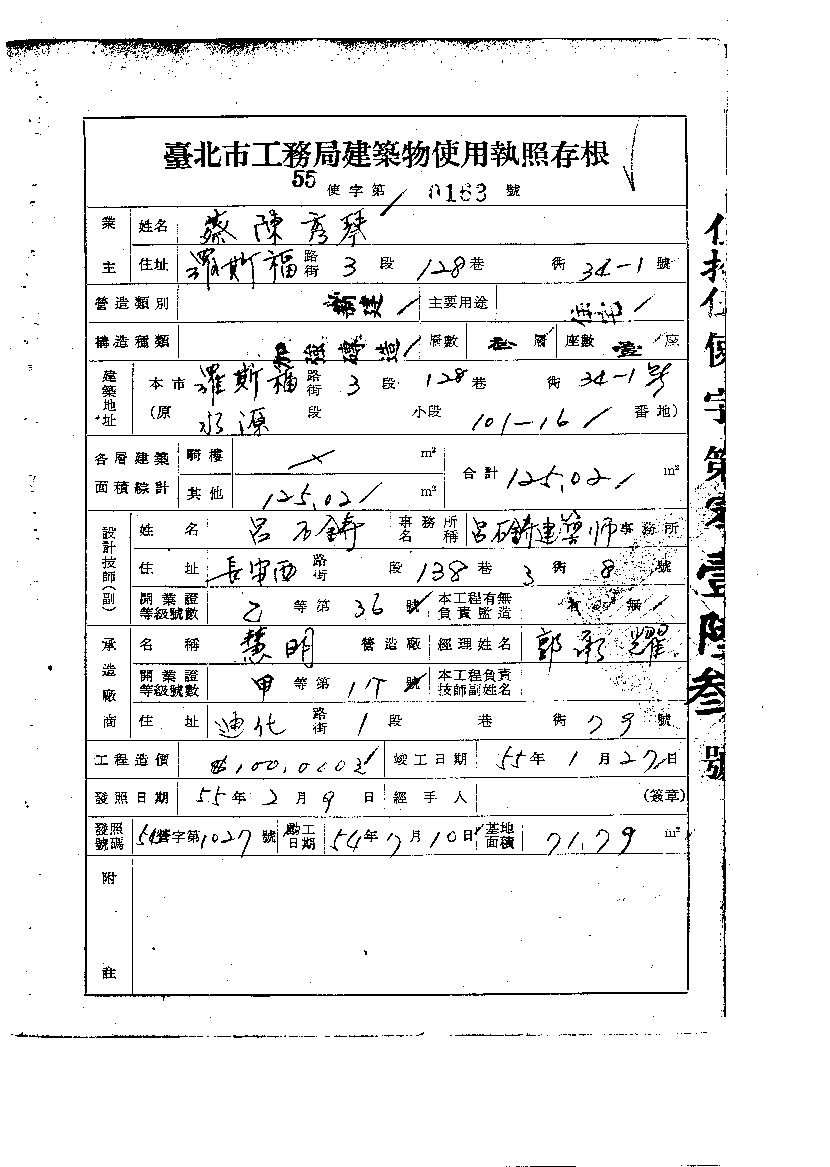 臺北市工務局建築物使用執照存根
55使字第 0163 號
業主 姓名 蔡陳秀琴
住址 羅斯福路街 3 段 128 巷 街 34-1 號
營造類別 新建 主要用途 住宅
構造種類 加強磚造 層數 層 座數 壹 座
建築地址 本市 羅斯福路街 3 段 128 巷 街 34-1號
(原 水源 段 小段 101-16 番地)
各層建築面積綜計 騎樓 × m² 合計 125.02 m²
其他 125.02 m²
設計技師(副) 姓名 呂石鑄 事務所名稱 呂石鑄建築师事務所
住址 長安西路街 段 138 巷 3 街 8 號
開業證等級號數 乙等第 36 號 本工程有無負責監造 無
承造廠商 名稱 慧明 營造廠 經理姓名 郭承耀
開業證等級號數 甲等第 號 本工程負責技師副姓名
住址 迪化路街 1 段 巷 街 79 號
工程造價 100,000 竣工日期 55年 1 月 27日
發照日期 55年 2 月 9 日 經手人 (簽章)
發照號碼 54營字第1027號 動工日期 54年 7 月 10日 基地面積 71.79 m²
附註
使字第零壹陸叁號